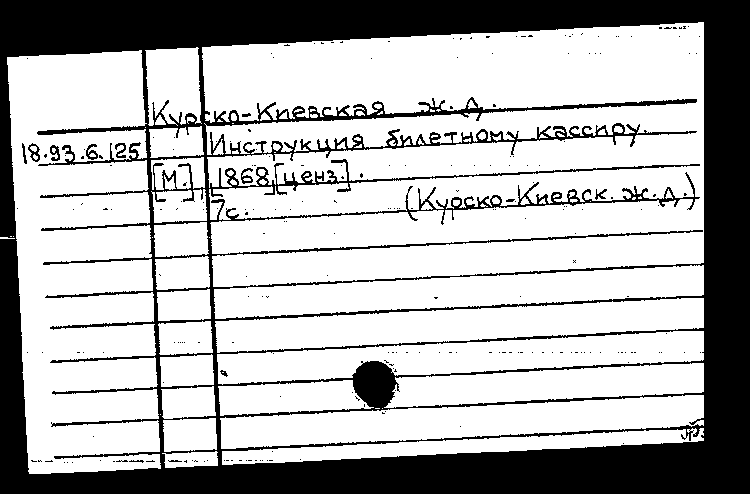 Курско-Киевская ж. д.
18.93.6.125 Инструкция билетному кассиру.
[М.], 1868 [ценз.].
7с. (Курско-Киевск. ж.д.)